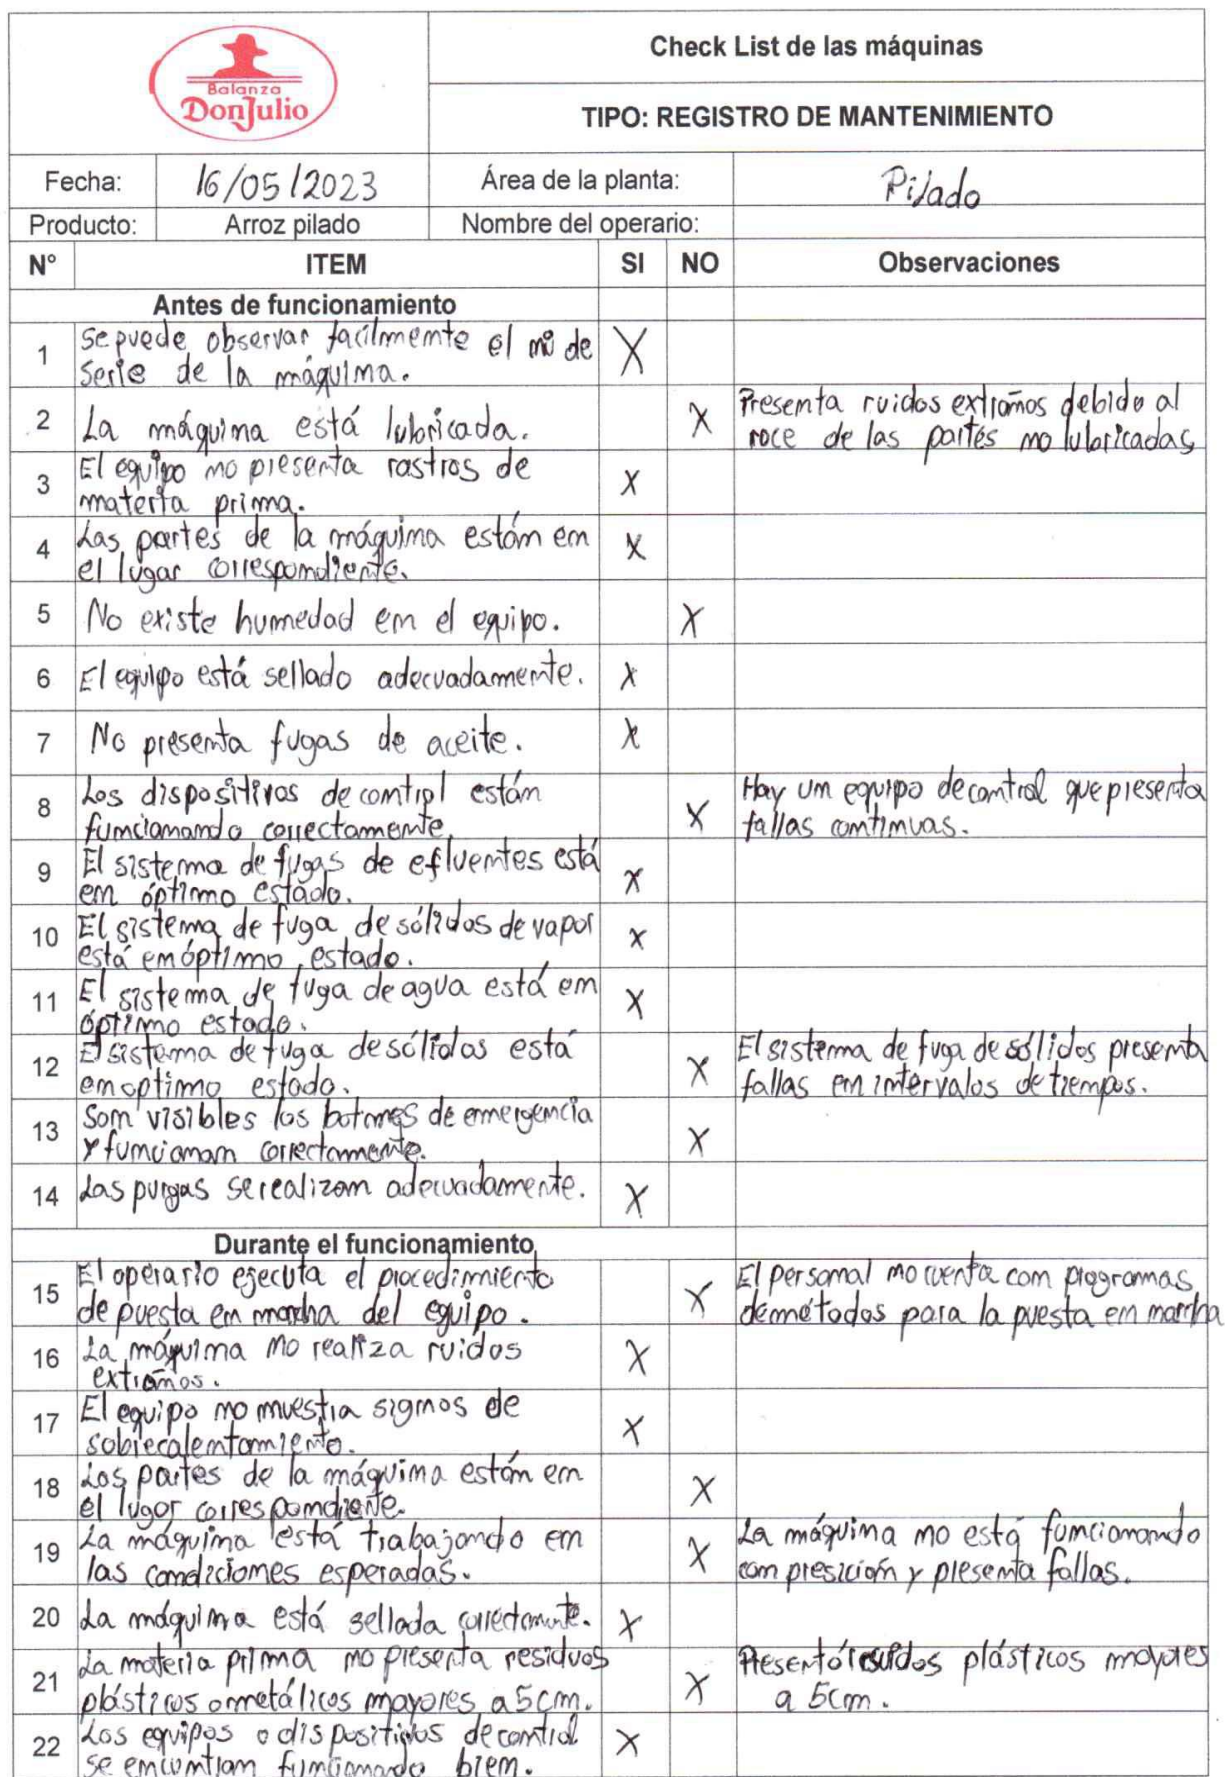 Balanza
Don Julio
Check List de las máquinas
TIPO: REGISTRO DE MANTENIMIENTO
Fecha: 16/05/2023 Área de la planta: Pilado
Producto: Arroz pilado Nombre del operario:
N° ITEM SI NO Observaciones
Antes de funcionamiento
1 Se puede observar facilmente el de X
serie de la máquina.
2 La máquina está lubricada. X Presenta ruidos extraños debido al
roce de las partes no lubricadas
3 El equipo no presenta rastros de X
materia prima.
4 Las partes de la máquina están en X
el lugar correspondiente.
5 No existe humedad en el equipo. X
6 El equipo está sellado adecuadamente. X
7 No presenta fugas de aceite. X
8 Los dispositivos de control están X Hay un equipo de control que presenta
funcionando correctamente. fallas continuas.
9 El sistema de fugas de efluentes está X
en óptimo estado.
10 El sistema de fuga de sólidos de vapor X
está en óptimo estado.
11 El sistema de fuga de agua está en X
óptimo estado.
12 El sistema de fuga de sólidos está X El sistema de fuga de sólidos presenta
en optimo estado. fallas en intervalos de tiempos.
13 Son visibles los botones de emergencia X
y funcionan correctamente.
14 Las purgas se realizan adecuadamente. X
Durante el funcionamiento
15 El operario ejecuta el procedimiento X El personal no cuenta con programas
de puesta en marcha del equipo. de métodos para la puesta en marcha
16 La máquina no realiza ruidos X
extraños.
17 El equipo no muestra signos de X
sobrecalentamiento.
18 Las partes de la máquina están en X
el lugar correspondiente.
19 La máquina está trabajando en X La máquina no está funcionando
las condiciones esperadas. con presición y presenta fallas.
20 La máquina está sellada correctamente. X
21 La materia prima no presenta residuos X Presentó residos plásticos mayores
plásticos o metálicos mayores a 5cm. a 5cm.
22 Los equipos o dispositivos de control X
se encuntran funcionando bien.